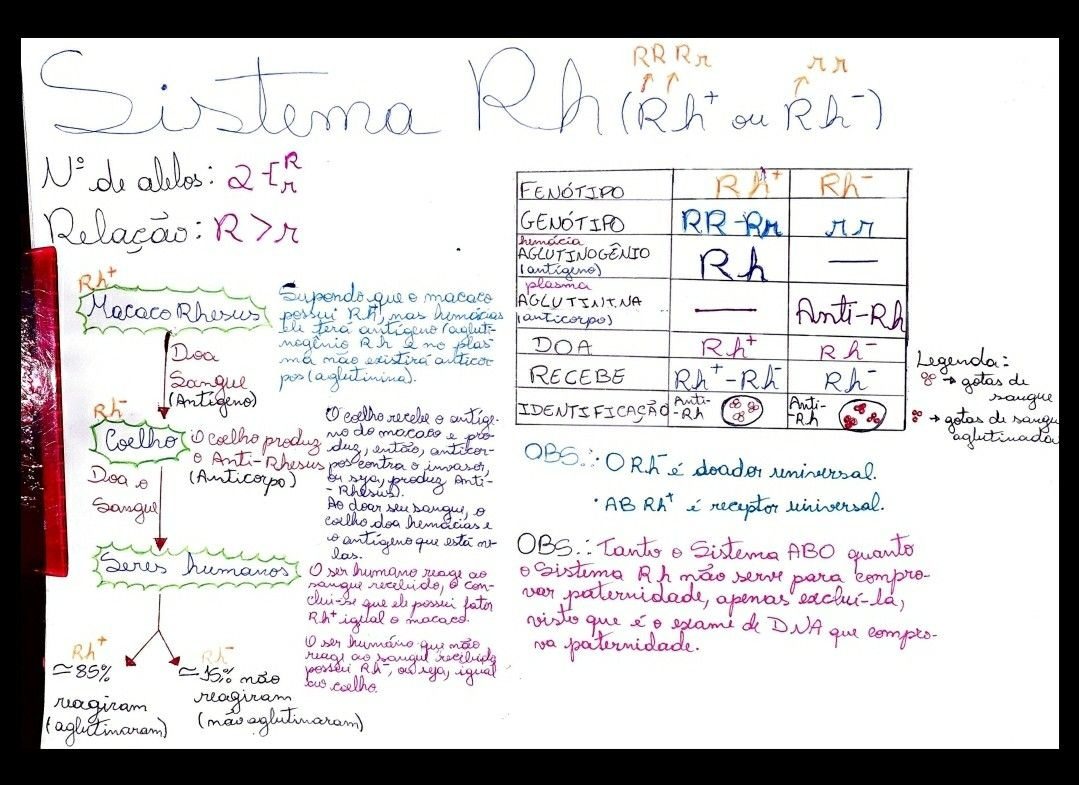 RR Rr
rr
Sistema Rh (Rh+ ou Rh-)
Nº de alelos: 2 -[ R r
Relação: R > r
Rh+
Macaco Rhesus
Doa
Sangue
(Antígeno)
Rh-
Coelho
Doa o
Sangue
O coelho produz
o Anti-Rhesus
(Anticorpo)
Seres humanos
Rh+
≃ 85%
reagiram
(aglutinaram)
Rh-
≃ 15% não
reagiram
(não aglutinaram)
Supondo que o macaco
possui Rh+, nas hemácias
ele terá antígeno (agluti-
nogênio Rh e no plas-
ma não existirá anticor
pos (aglutinina).
O coelho recebe o antíge-
no do macaco e pro-
duz, então, anticor-
pos contra o invasor,
ou seja, produz Anti-
-Rhesus).
Ao doar seu sangue, o
coelho doa hemácias e
o antígeno que está ne-
las.
O ser humano reage ao
sangue recebido, o con-
clui-se que ele possui fator
Rh+ igual o macaco.
O ser humano que não
reage ao sangue recebido
possui Rh-, ou seja, igual
ao coelho.
FENÓTIPO Rh+ Rh-
GENÓTIPO RR-Rr rr
hemácia
AGLUTINOGÊNIO Rh —
(antígeno)
plasma
AGLUTININA — Anti-Rh
(anticorpo)
DOA Rh+ Rh-
RECEBE Rh+-Rh- Rh-
IDENTIFICAÇÃO Anti-
-Rh
Anti-
-Rh
Legenda:
→ gotas de
sangue
→ gotas de sangue
aglutinada
OBS.: O Rh- é doador universal.
· AB Rh+ é receptor universal.
OBS.: Tanto o Sistema ABO quanto
o Sistema Rh não serve para compro-
var paternidade, apenas excluí-la,
visto que é o exame de DNA que compro-
va paternidade.